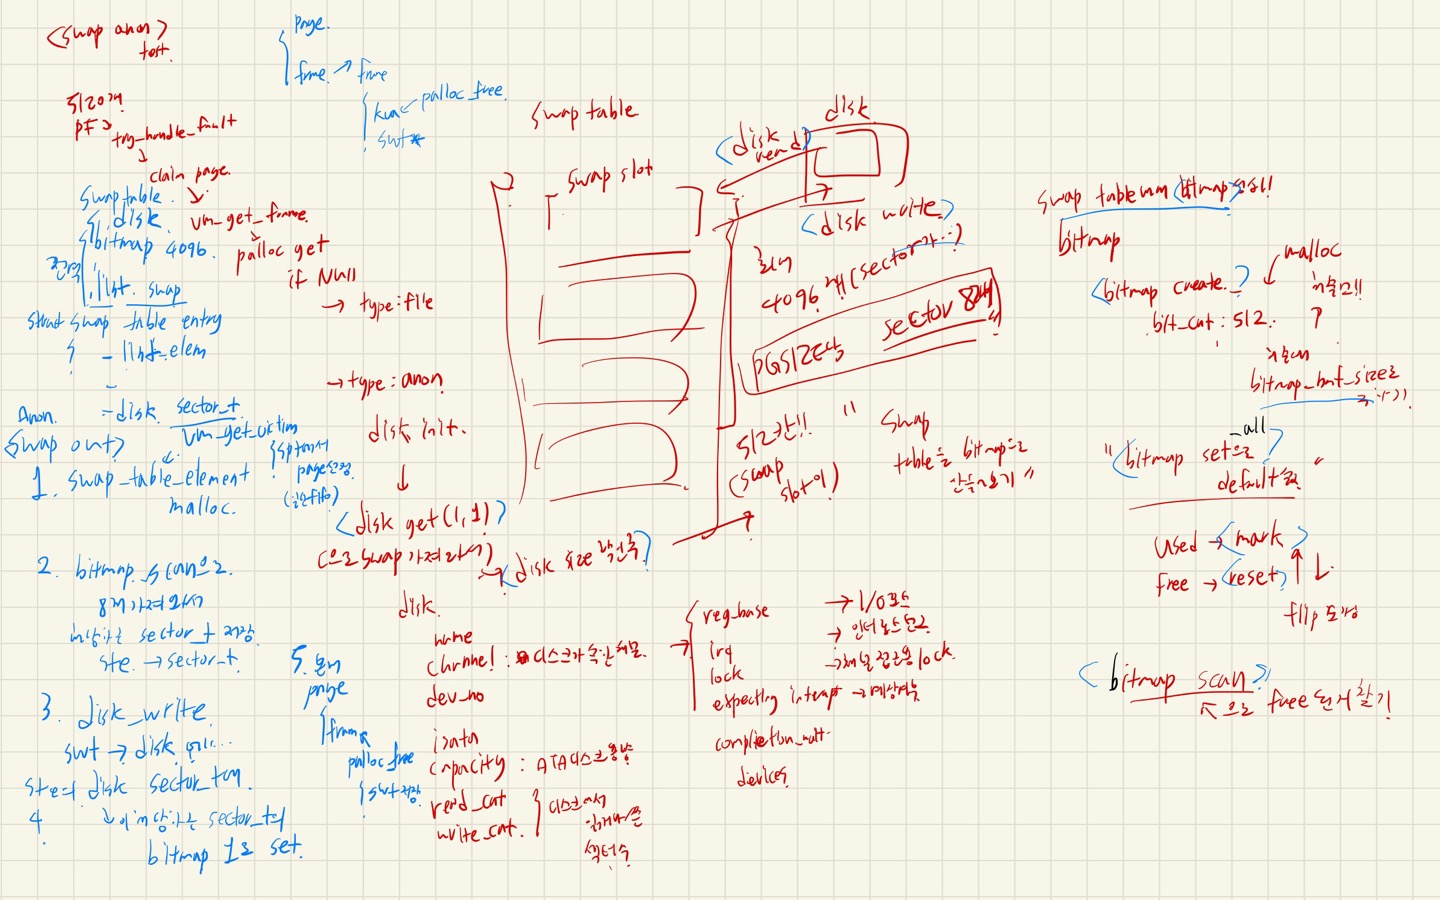 <swap anon>
test.
512개
PF →
try_handle_fault
claim page.
vm_get_frame.
palloc get
if Null
→ type:file
→ type:anon
disk init.
<disk get(1,1)>
으로 swap 가져와서
<disk size
disk.
name
channel : 디스크가 속한 채널.
dev_no
isata
capacity : ATA디스크용량
read_cnt
write_cnt.
디스크에서
섹터수
page.
frame → frame
kva ← palloc_free.
swt
swap table.
disk
bitmap 4096.
전역
list. swap
struct swap table entry
- list_elem
-
- disk sector_t
Anon.
<swap out>
vm_get_victim
spt에서
page선정
1. swap_table_element
malloc.
2. bitmap_scan으로
8개 가져와서
해당하는 sector_t 저장
ste → sector_t.
3. disk_write
swt → disk
disk sector_t
4.
해당하는 sector_t의
bitmap 1로 set.
5. 본래
page
frame
palloc_free
swt저장
swap table
swap slot
disk
<disk read>
<disk write>
4096개(sector가..)
PGSIZE당 sector 8개
512칸!!
(swap
slot이)
" swap
table을 bitmap으로
만들기 "
reg_base → I/O포트
irq → 인터럽트번호
lock → 채널 접근용 lock.
expecting interrupt → 예상여부
completion_wait
devices
swap table
bitmap
<bitmap create.>
malloc
bit_cnt : 512.
?
bitmap_buf_size로
"<bitmap set_all>으로
default "
used → <mark>
free → <reset>
flip 도
<bitmap scan>
으로 free 된거 찾기!